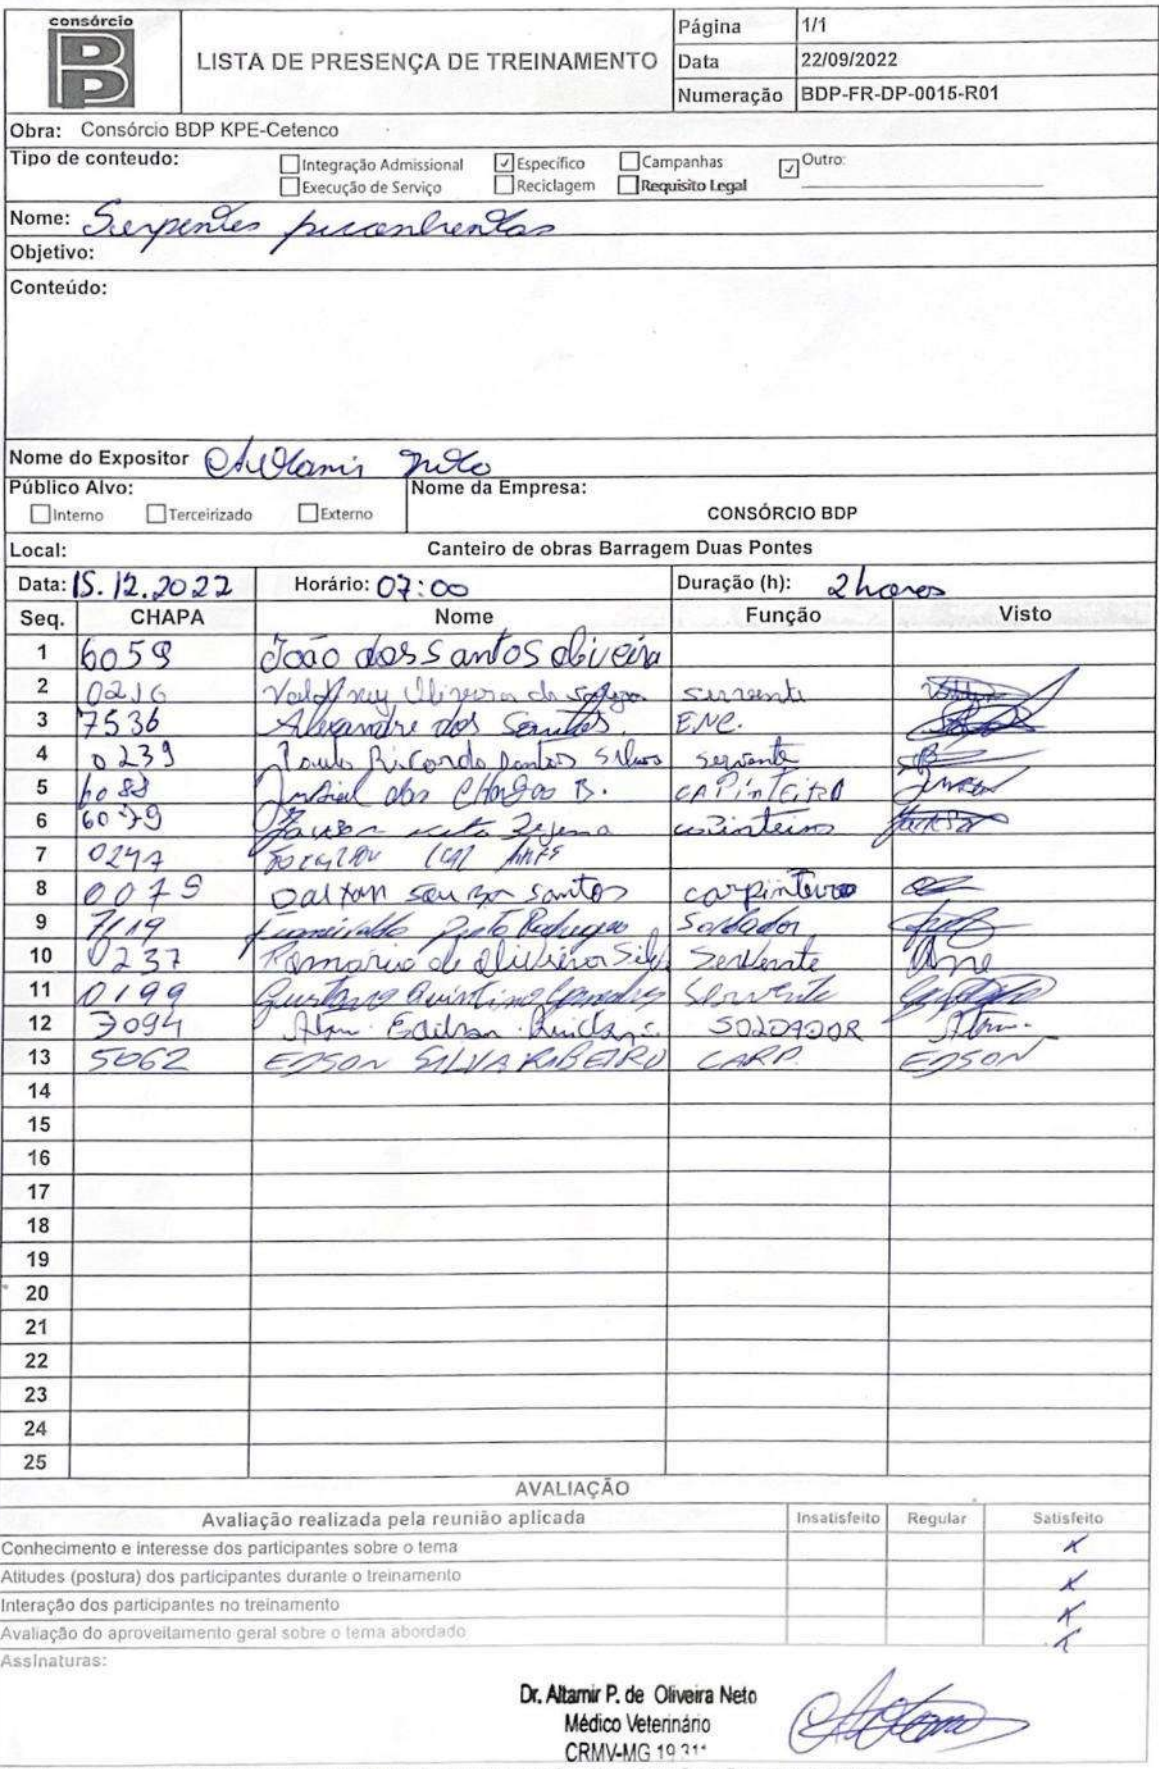 consórcio
BDP
LISTA DE PRESENÇA DE TREINAMENTO
Página 1/1
Data 22/09/2022
Numeração BDP-FR-DP-0015-R01
Obra: Consórcio BDP KPE-Cetenco
Tipo de conteudo: Integração Admissional Específico Campanhas Outro:
Execução de Serviço Reciclagem Requisito Legal
Nome: Serpentes
Objetivo:
Conteúdo:
Nome do Expositor Altamir Neto
Público Alvo: Nome da Empresa:
Interno Terceirizado Externo CONSÓRCIO BDP
Local: Canteiro de obras Barragem Duas Pontes
Data: 15.12.2022 Horário: 07:00 Duração (h): 2 horas
Seq. CHAPA Nome Função Visto
1 6059 João dos Santos oliveira
2 0216 Oliveira de servente
3 7536 Alexandre dos Santos. ENC.
4 0239 Paulo Ricardo Santos Silva servente
5 das Chagas B. CAPinTEiRO
6 6079 carpinteiro
7 0247
8 0079 Dalton souza santos carpinteiro
9 7119 Pinto Soldador
10 0237 Romario de Oliveira Silv Servente
11 0199 Gustavo Quintino Servente
12 7094 Alan Edilson SOLDADOR Alan.
13 5062 EDSON SILVA RIBEIRO CARP. EDSON
14
15
16
17
18
19
20
21
22
23
24
25
AVALIAÇÃO
Avaliação realizada pela reunião aplicada Insatisfeito Regular Satisfeito
Conhecimento e interesse dos participantes sobre o tema X
Atitudes (postura) dos participantes durante o treinamento X
Interação dos participantes no treinamento X
Avaliação do aproveitamento geral sobre o tema abordado X
Assinaturas:
Dr. Altamir P. de Oliveira Neto
Médico Veterinário
CRMV-MG